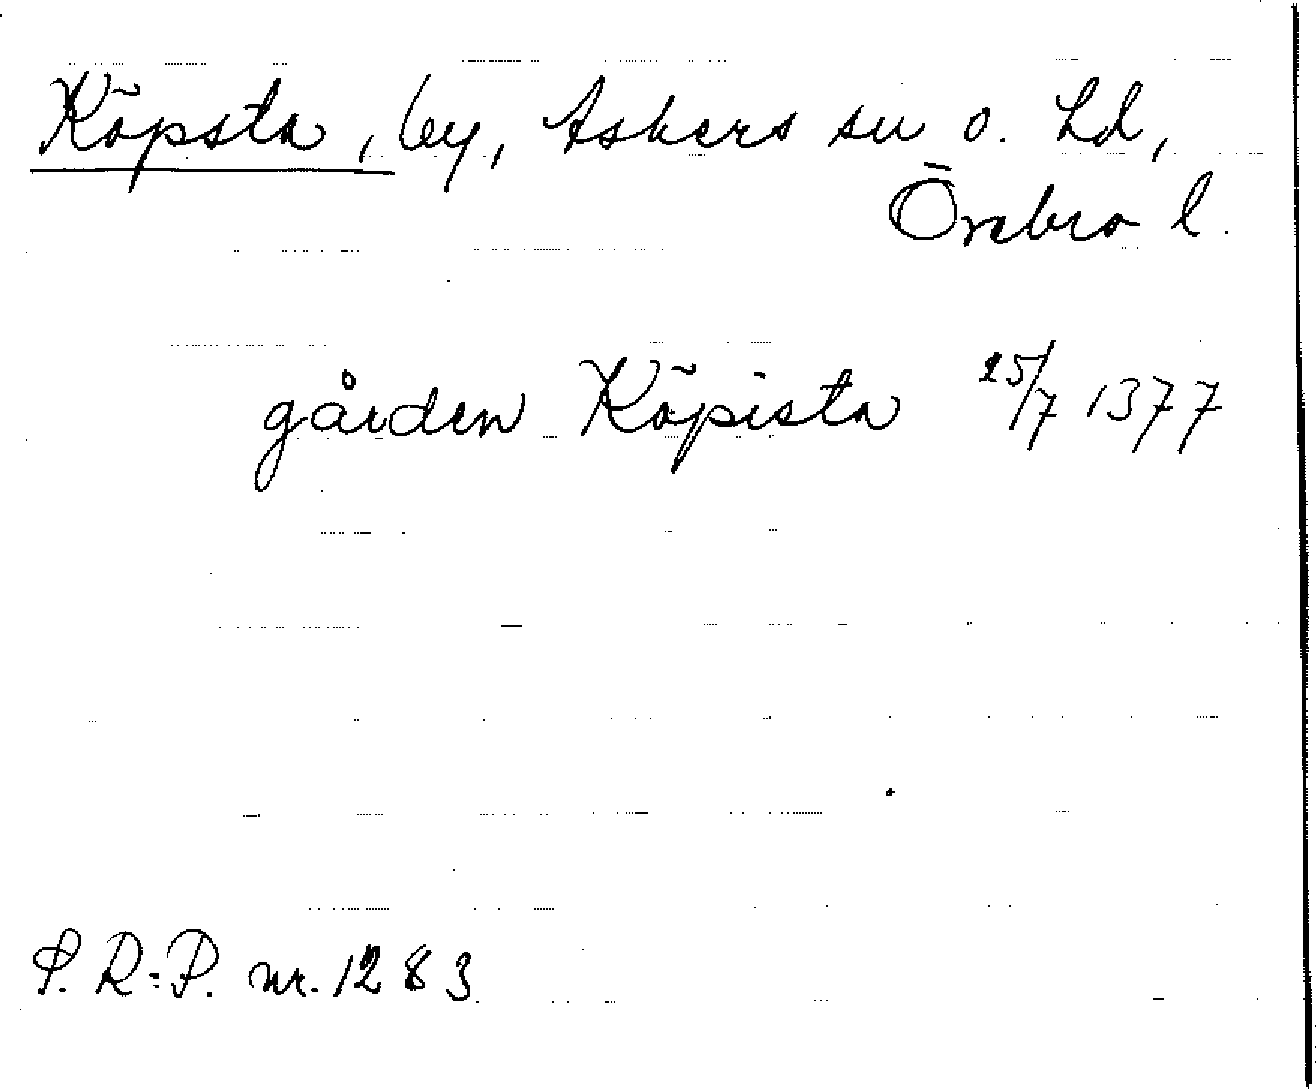 Köpsta, by, Askers sn o. hd,
Örebro l.
gården Köpista 25/7 1377
S. R:P. nr. 1283